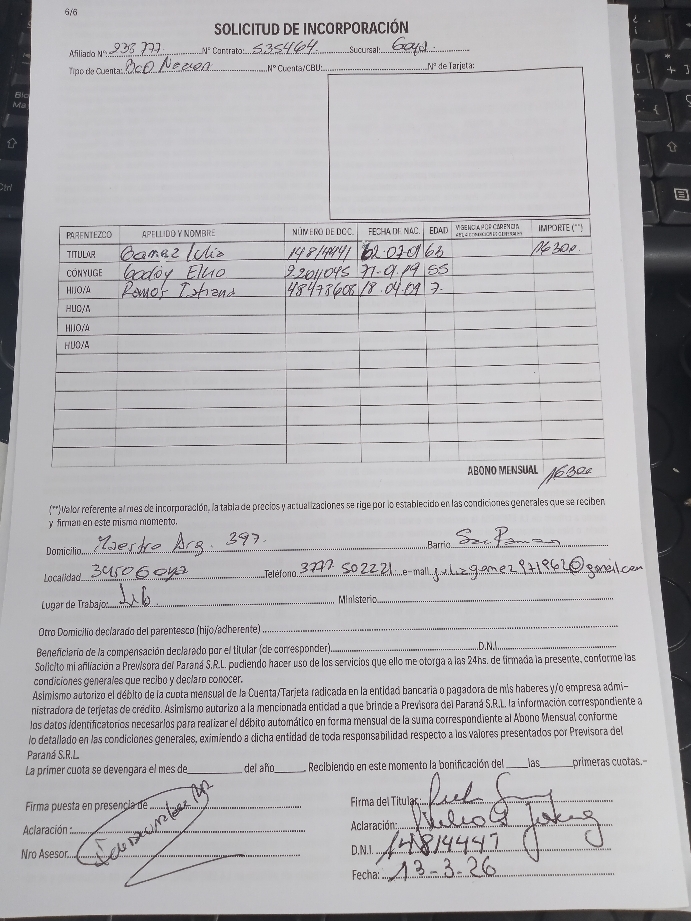 6/6
SOLICITUD DE INCORPORACIÓN
Afiliado N°: 938777 N° Contrato: 535464 Sucursal: Goya
Tipo de Cuenta: Bco Nacion N° Cuenta/CBU: N° de Tarjeta:
PARENTEZCO APELLIDO Y NOMBRE NÚMERO DE DOC. FECHA DE NAC. EDAD VIGENCIA POR CARENCIA IMPORTE (**)
TITULAR Gomez Julia 14814441 63 16300
CÓNYUGE Godoy Elvio 55
HIJO/A Ramos Tatiana 48478608 18.04.09 7
HIJO/A
HIJO/A
HIJO/A
ABONO MENSUAL 16300
(**)Valor referente al mes de incorporación, la tabla de precios y actualizaciones se rige por lo establecido en las condiciones generales que se reciben
y firman en este mismo momento.
Domicilio Maestro Arg. 397. Barrio San Ramon
Localidad 3450 Goya Teléfono 3777 502221 e-mail juliagomez971962@gmail.com
Lugar de Trabajo: Jub Ministerio
Otro Domicilio declarado del parentesco (hijo/adherente)
Beneficiario de la compensación declarado por el titular (de corresponder) D.N.I.
Solicito mi afiliación a Previsora del Paraná S.R.L. pudiendo hacer uso de los servicios que ello me otorga a las 24hs. de firmada la presente, conforme las
condiciones generales que recibo y declaro conocer.
Asimismo autorizo el débito de la cuota mensual de la Cuenta/Tarjeta radicada en la entidad bancaria o pagadora de mis haberes y/o empresa admi-
nistradora de terjetas de crédito. Asimismo autorizo a la mencionada entidad a que brinde a Previsora del Paraná S.R.L. la información correspondiente a
los datos identificatorios necesarios para realizar el débito automático en forma mensual de la suma correspondiente al Abono Mensual conforme
lo detallado en las condiciones generales, eximiendo a dicha entidad de toda responsabilidad respecto a los valores presentados por Previsora del
Paraná S.R.L.
La primer cuota se devengara el mes de del año . Recibiendo en este momento la bonificación del las primeras cuotas.-
Firma puesta en presencia de
Firma del Titular
Aclaración:
Aclaración:
Nro Asesor
D.N.I. 14814441
Fecha: 13-3-26